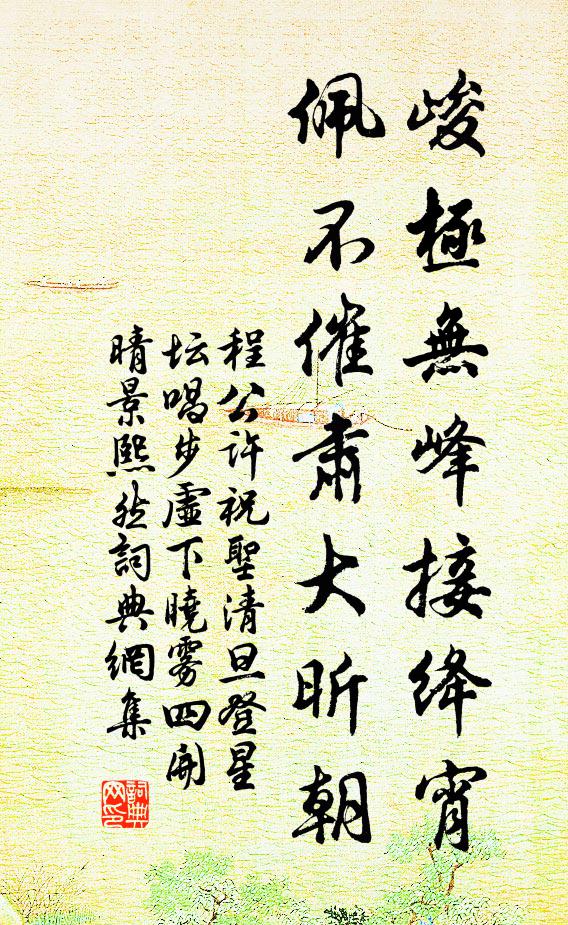 峻極無峰接绛宵
佩不催肅大昕朝
程公许祝聖清旦登星
坛唱步虚下曉雾四開
晴景熙然詞典網集
詞典网印